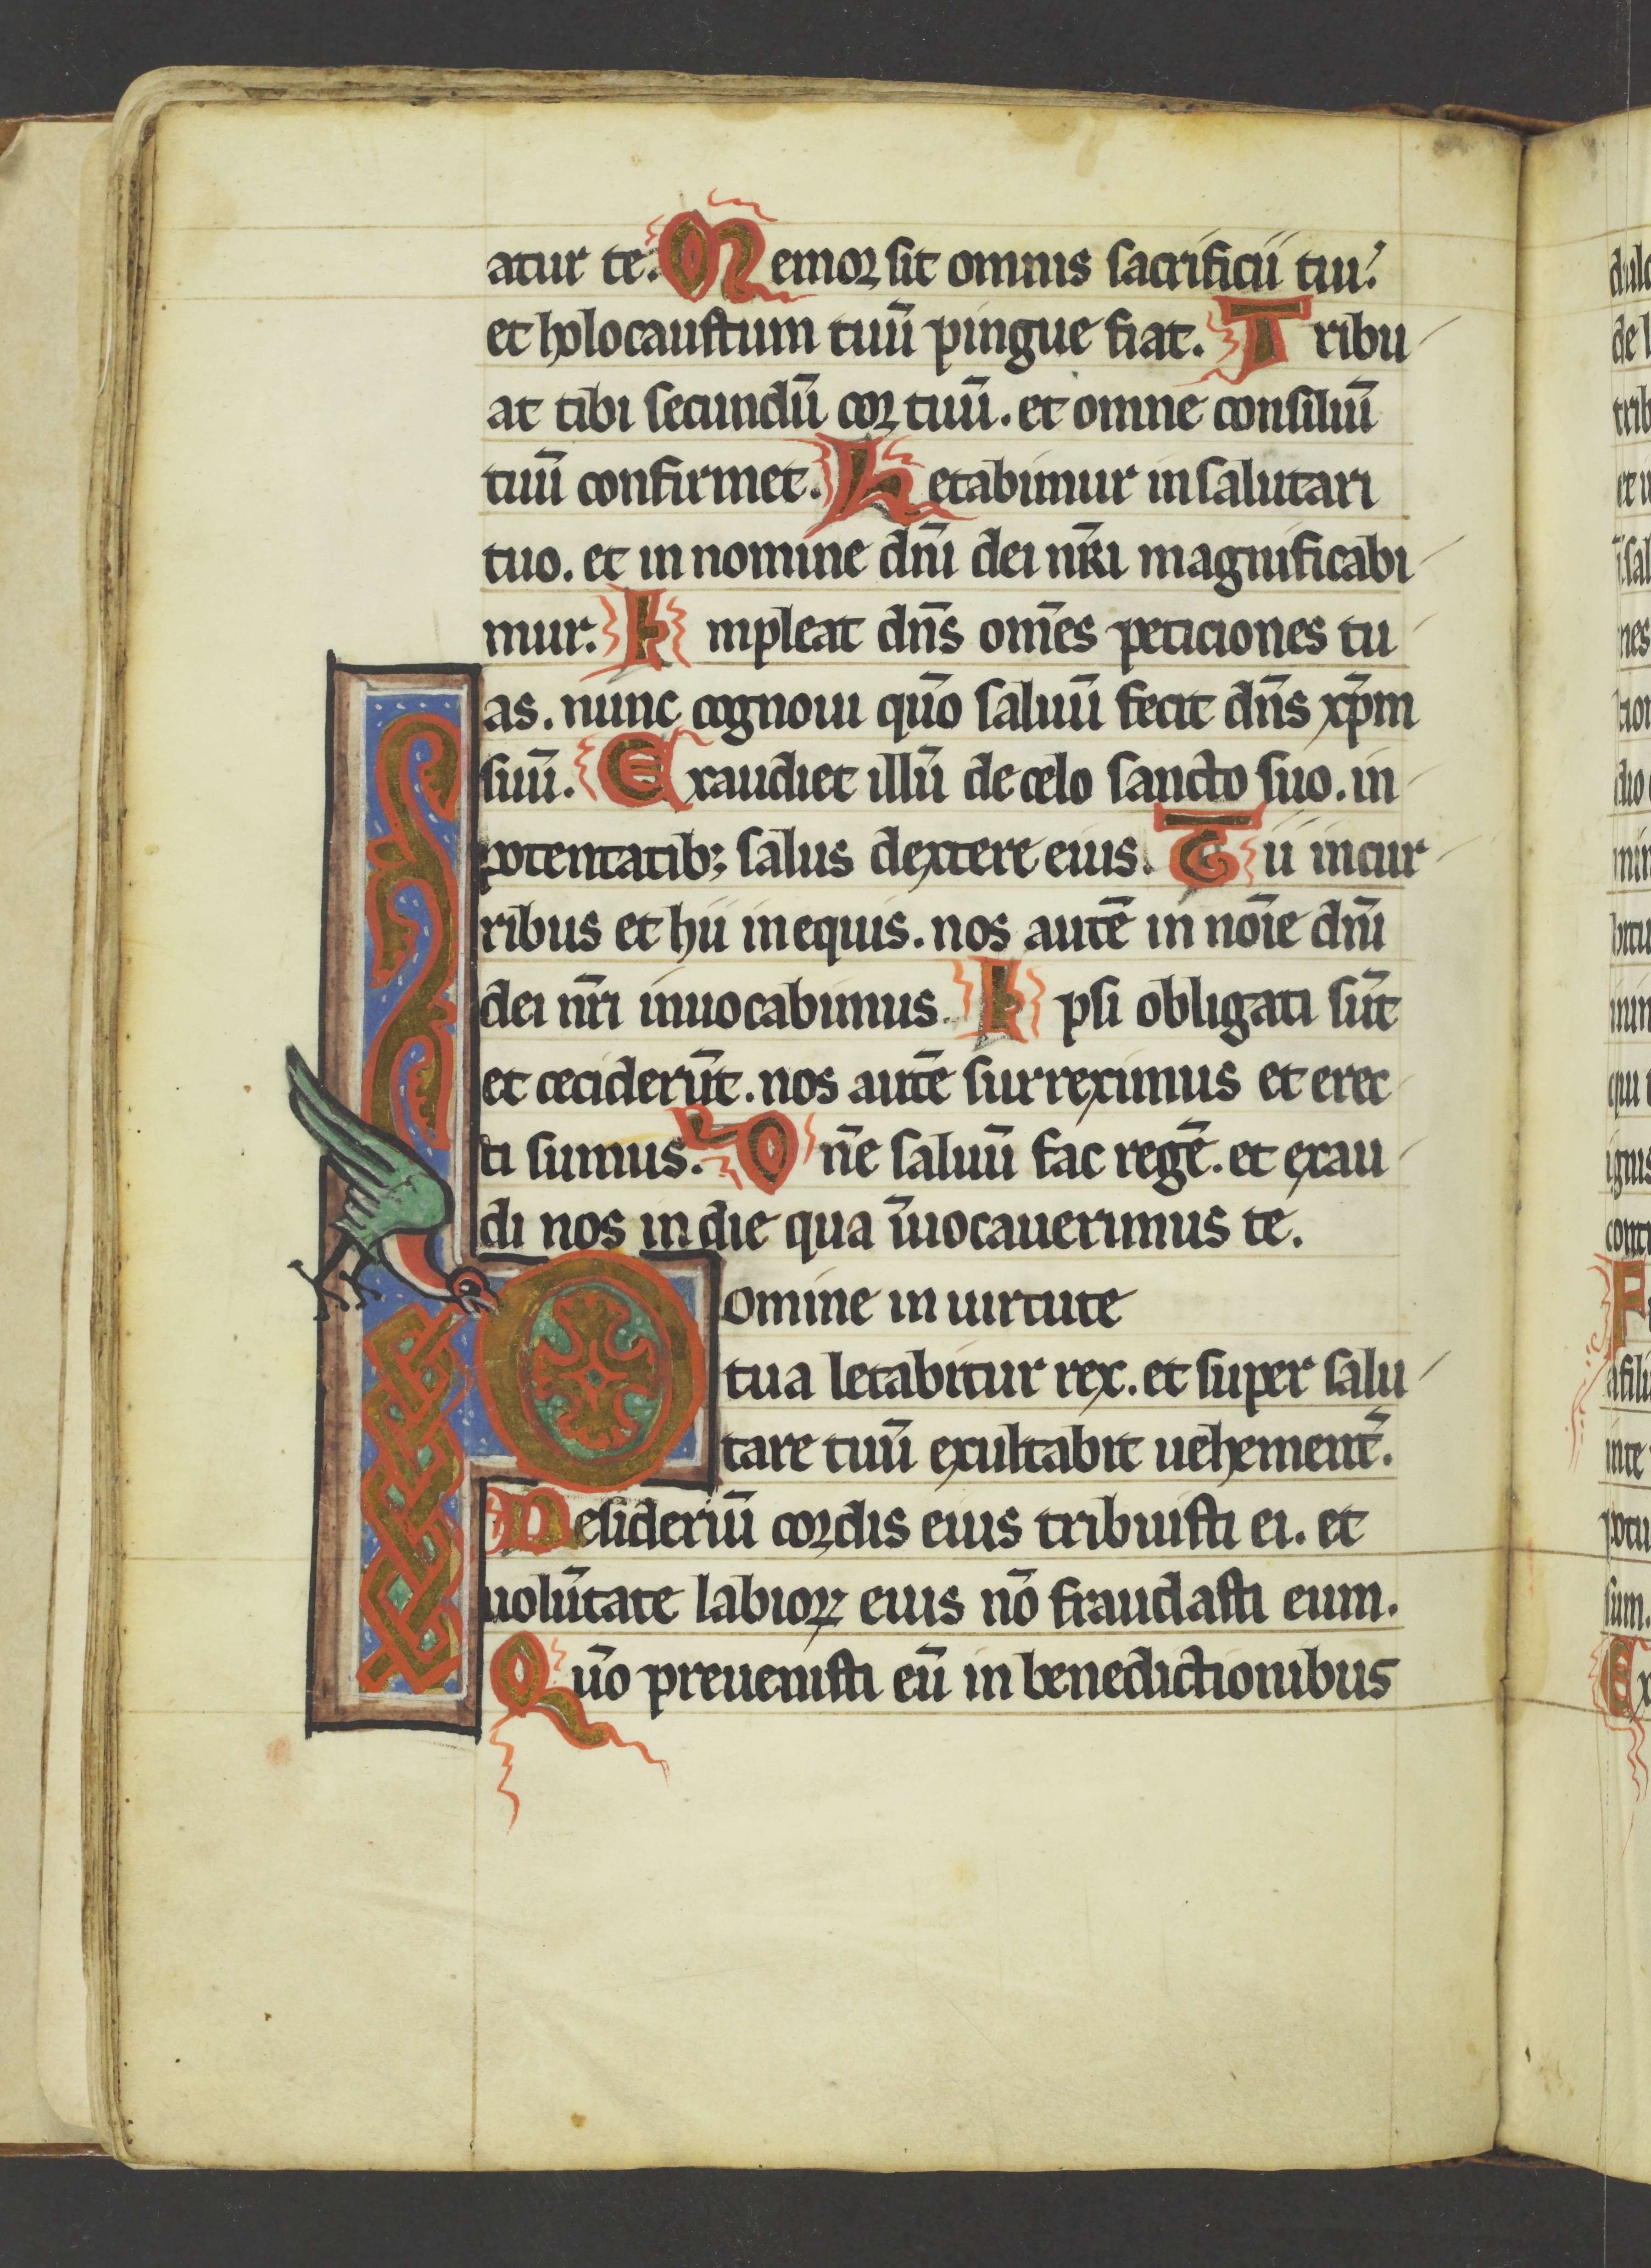 atur te. Memoꝛ sit omnis sacrificii tui.
et holocaustum tuū pingue fiat. Tribu
at tibi secundū coꝛ tuū. et omne consiliū
tuū confirmet. Letabimur in salutari
tuo. et in nomine dn̄i dei nr̄i magnificabi
mur. Impleat dn̄s om̄es peticiones tu
as. nunc cognoui qūo saluū fecit dn̄s xp̄m
suū. Exaudiet illū de celo sancto suo. in
potentatibꝫ salus dextere eius. Hii in cur
ribus et hii in equis. nos autē in nōie dn̄i
dei nr̄i inuocabimus. Ipsi obligati sūt
et ceciderūt. nos autē surreximus et erec
ti sumus. Dn̄e saluū fac regē. et exau
di nos in die qua īuocauerimus te.
Domine in uirtute
tua letabitur rex. et super salu
tare tuū exultabit uehement̄.
Desideriū coꝛdis eius tribuisti ei. et
uolūtate labioꝝ eius nō fraudasti eum.
Qūo preuenisti eū in benedictionibus